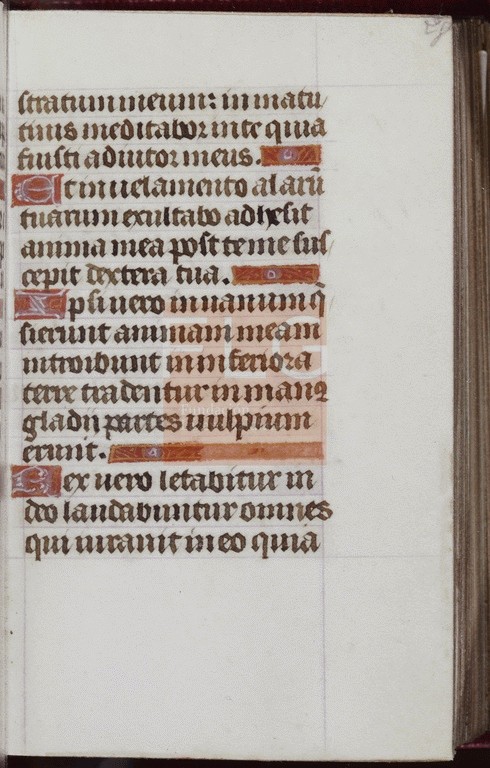 stratum meum: in matu
tinis meditabor in te quia
fuisti adiutor meus.
Et in uelamento alarū
tuarum exultabo adhesit
anima mea post te me sus
cepit dextera tua.
Ipsi uero in uanum q̄
sierunt animam meam
introibunt in inferiora
terre tradentur in manꝰ
gladii partes uulpium
erunt.
Rex uero letabitur in
deo laudabuntur omnes
qui iurant in eo quia
Fundación